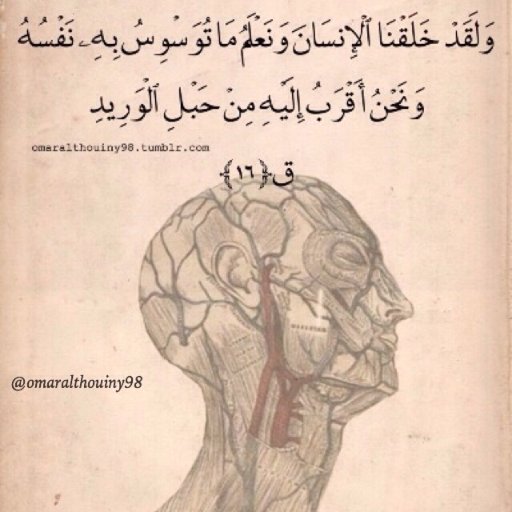 وَلَقَدْ خَلَقْنَا ٱلْإِنسَانَ وَنَعْلَمُ مَا تُوَسْوِسُ بِهِۦ نَفْسُهُۥ
وَنَحْنُ أَقْرَبُ إِلَيْهِ مِنْ حَبْلِ ٱلْوَرِيدِ
omaralthouiny98.tumblr.com
ق ﴿١٦﴾
@omaralthouiny98